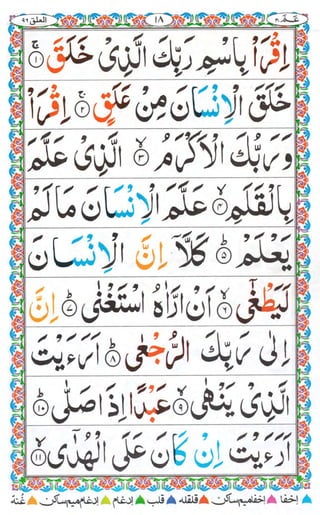 العلق ٩٦ ١٨ عٓمّ ٣٠
اِقۡرَاۡ بِاسۡمِ رَبِّكَ الَّذِىۡ خَلَقَ‌ۚ‏ ﴿۱﴾
خَلَقَ الۡاِنۡسَانَ مِنۡ عَلَقٍ‌ۚ‏ ﴿۲﴾ اِقۡرَاۡ
وَرَبُّكَ الۡاَكۡرَمُۙ‏ ﴿۳﴾ الَّذِىۡ عَلَّمَ
بِالۡقَلَمِۙ‏ ﴿۴﴾ عَلَّمَ الۡاِنۡسَانَ مَالَمۡ
يَعۡلَمۡؕ‏ ﴿۵﴾ كَلَّاۤ اِنَّ الۡاِنۡسَانَ
لَيَطۡغٰٓىۙ‏ ﴿۶﴾ اَنۡ رَّاٰهُ اسۡتَغۡنٰىؕ‏ ﴿۷﴾ اِنَّ
اِلٰى رَبِّكَ الرُّجۡعٰىؕ‏ ﴿۸﴾ اَرَءَيۡتَ
الَّذِىۡ يَنۡهٰىۙ‏ ﴿۹﴾ عَبۡدًا اِذَا صَلّٰىؕ‏ ﴿۱۰﴾
اَرَءَيۡتَ اِنۡ كَانَ عَلَى الۡهُدٰٓىۙ‏ ﴿۱۱﴾
اخفا اخفامیم ساکن قلقله قلب ادغام ادغام میم ساکن غنه